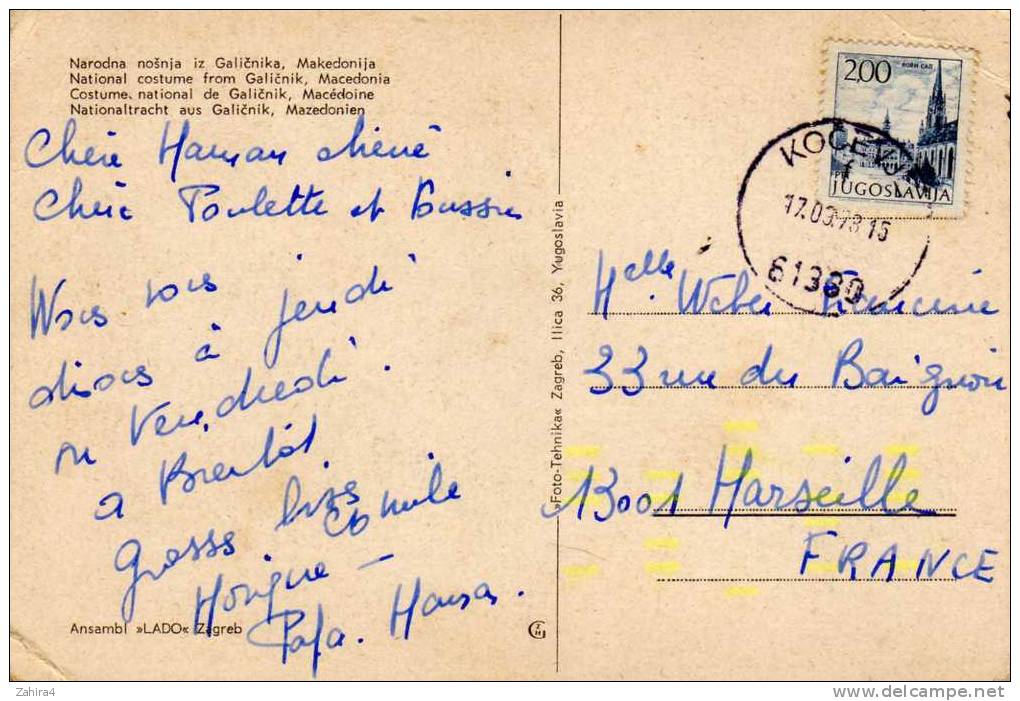 Narodna nošnja iz Galičnika, Makedonija
National costume from Galičnik, Macedonia
Costume national de Galičnik, Macédoine
Nationaltracht aus Galičnik, Mazedonien
Chère Maman chérie
Chère Poulette et
Nous vous
disons à jeudi
ou Vendredi.
a Bientôt
grosses bises
Monique
Papa. Maman.
Ansambl »LADO« Zagreb
»Foto-Tehnika« Zagreb, Ilica 36, Yugoslavia
2,00
JUGOSLAVIJA
KOČEV
17.09.73.15
61330
Melle. Weber Francine
33 rue du Baignoir
13001 Marseille
FRANCE
Zahira4
www.delcampe.net